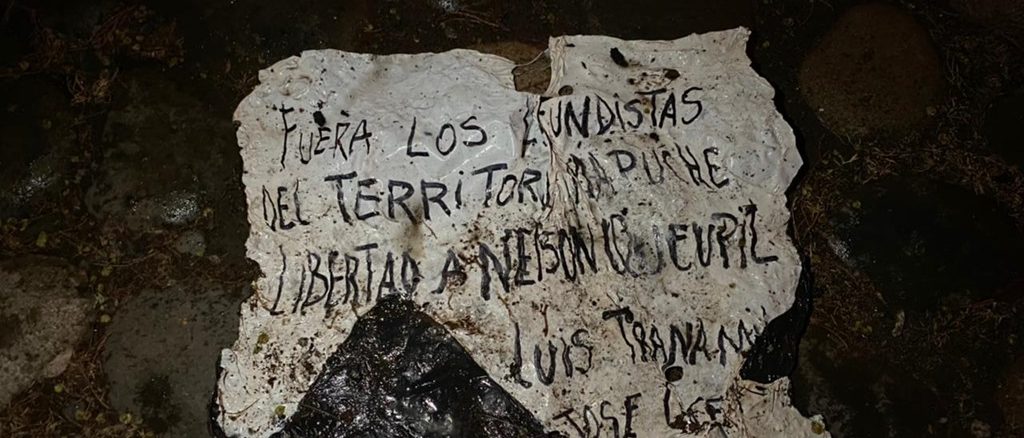 FUERA LOS FUNDISTAS
DEL TERRITORI MAPUCHE
LIBERTAD A NELSON QUEUPIL
LUIS TRANAMIL
JOSE